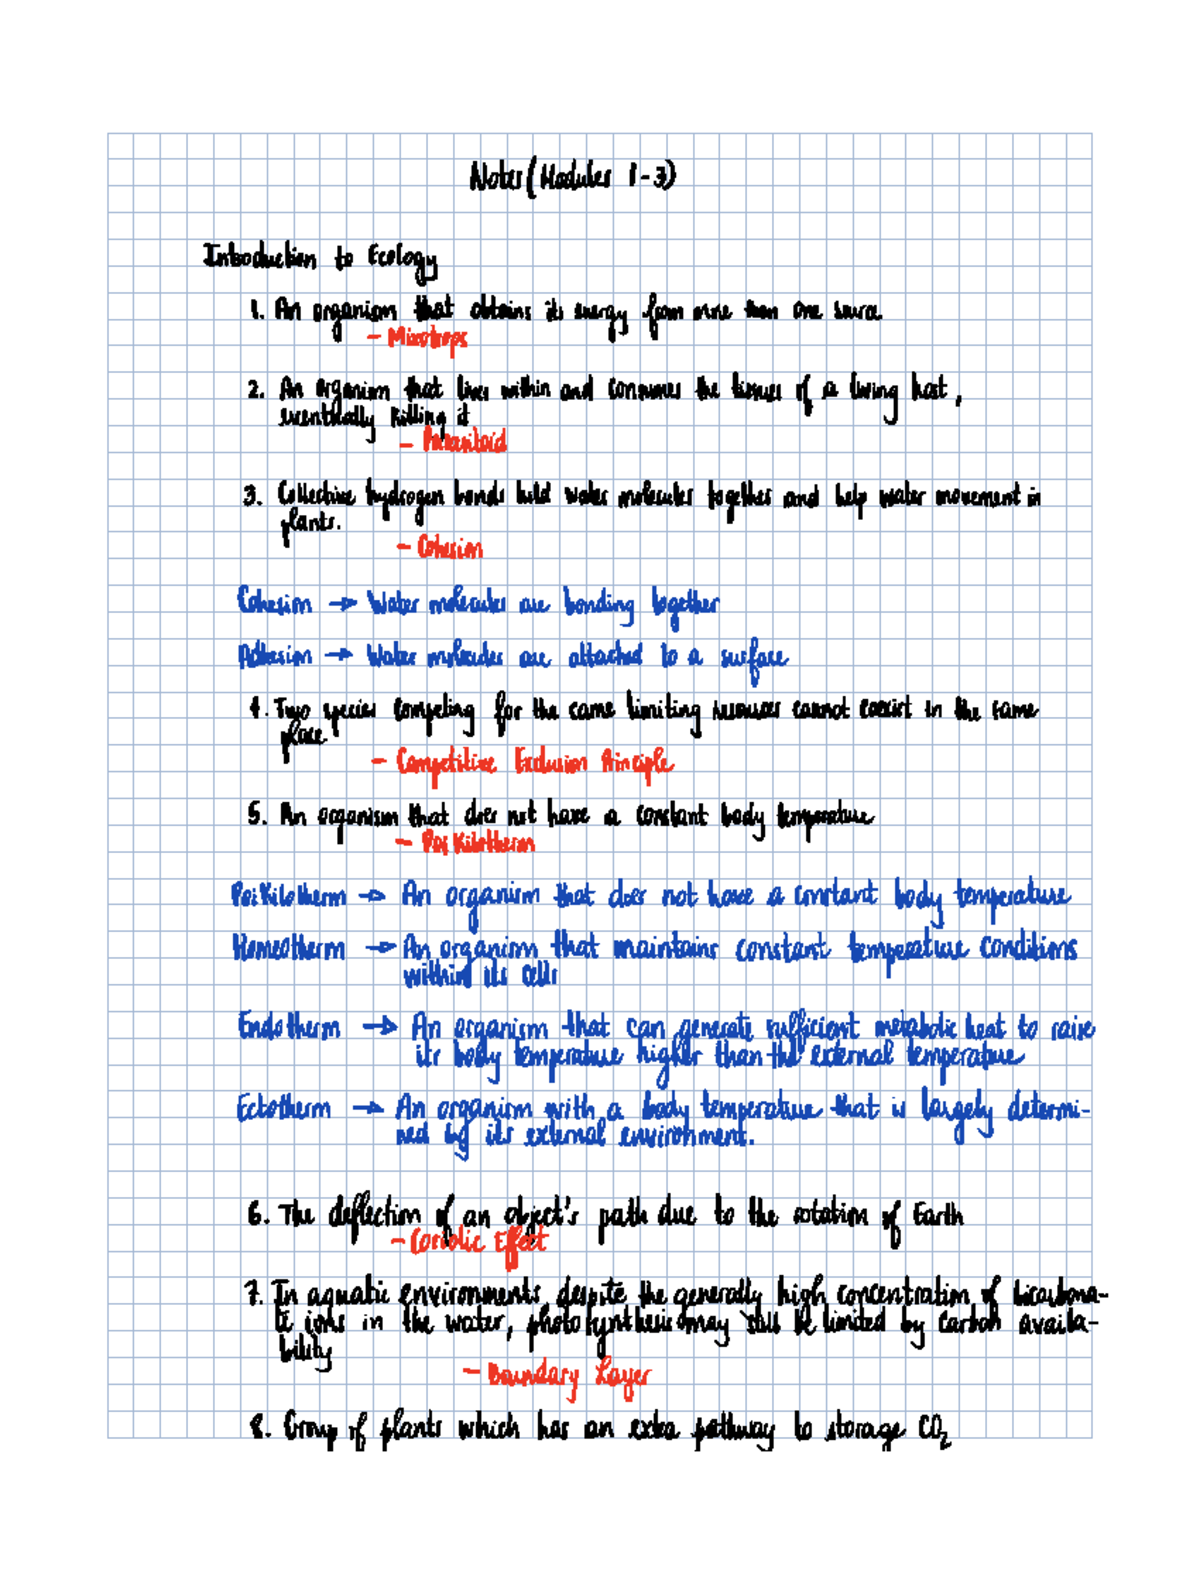 Notes (Modules 1-3)
Introduction to Ecology
1. An organism that obtains its energy from more than one source.
- Mixotrops
2. An organism that lives within and consumes the tissues of a living host,
eventually killing it
- Parasitoid
3. Collective hydrogen bonds hold water molecules together and help water movement in
plants.
- Cohesion
Cohesion → Water molecules are bonding together
Adhesion → Water molecules are attached to a surface
4. Two species competing for the same limiting resources cannot coexist in the same
place.
- Competitive Exclusion Principle
5. An organism that does not have a constant body temperature
- Poikilotherm
Poikilotherm → An organism that does not have a constant body temperature
Homeotherm → An organism that maintains constant temperature conditions
within its cells
Endotherm → An organism that can generate sufficient metabolic heat to raise
its body temperature higher than the external temperature
Ectotherm → An organism with a body temperature that is largely determi-
ned by its external environment.
6. The deflection of an object's path due to the rotation of Earth
- Coriolic Effect
7. In aquatic environments, despite the generally high concentration of bicarbona-
te ions in the water, photosynthesis may still be limited by carbon availa-
bility
- Boundary Layer
8. Group of plants which has an extra pathway to storage CO₂